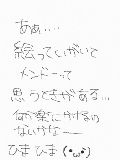 あぁ....
絵ってしがいて
メンドーって
思うときがある...
何か楽にかけるの
ないかなー
ひまひま(・ω・)